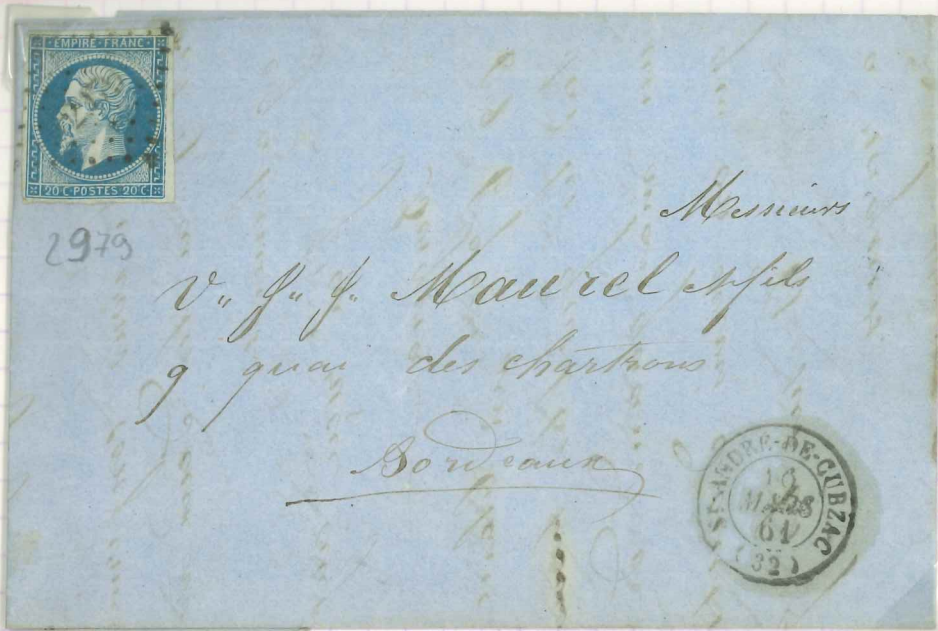 EMPIRE FRANC
20 C POSTES 20 C
2979
Messieurs
V" J" J. Maurel & fils
9 quai des chartrons
Bordeaux
ST-ANDRÉ-DE-CUBZAC
16
MARS
61
(32)